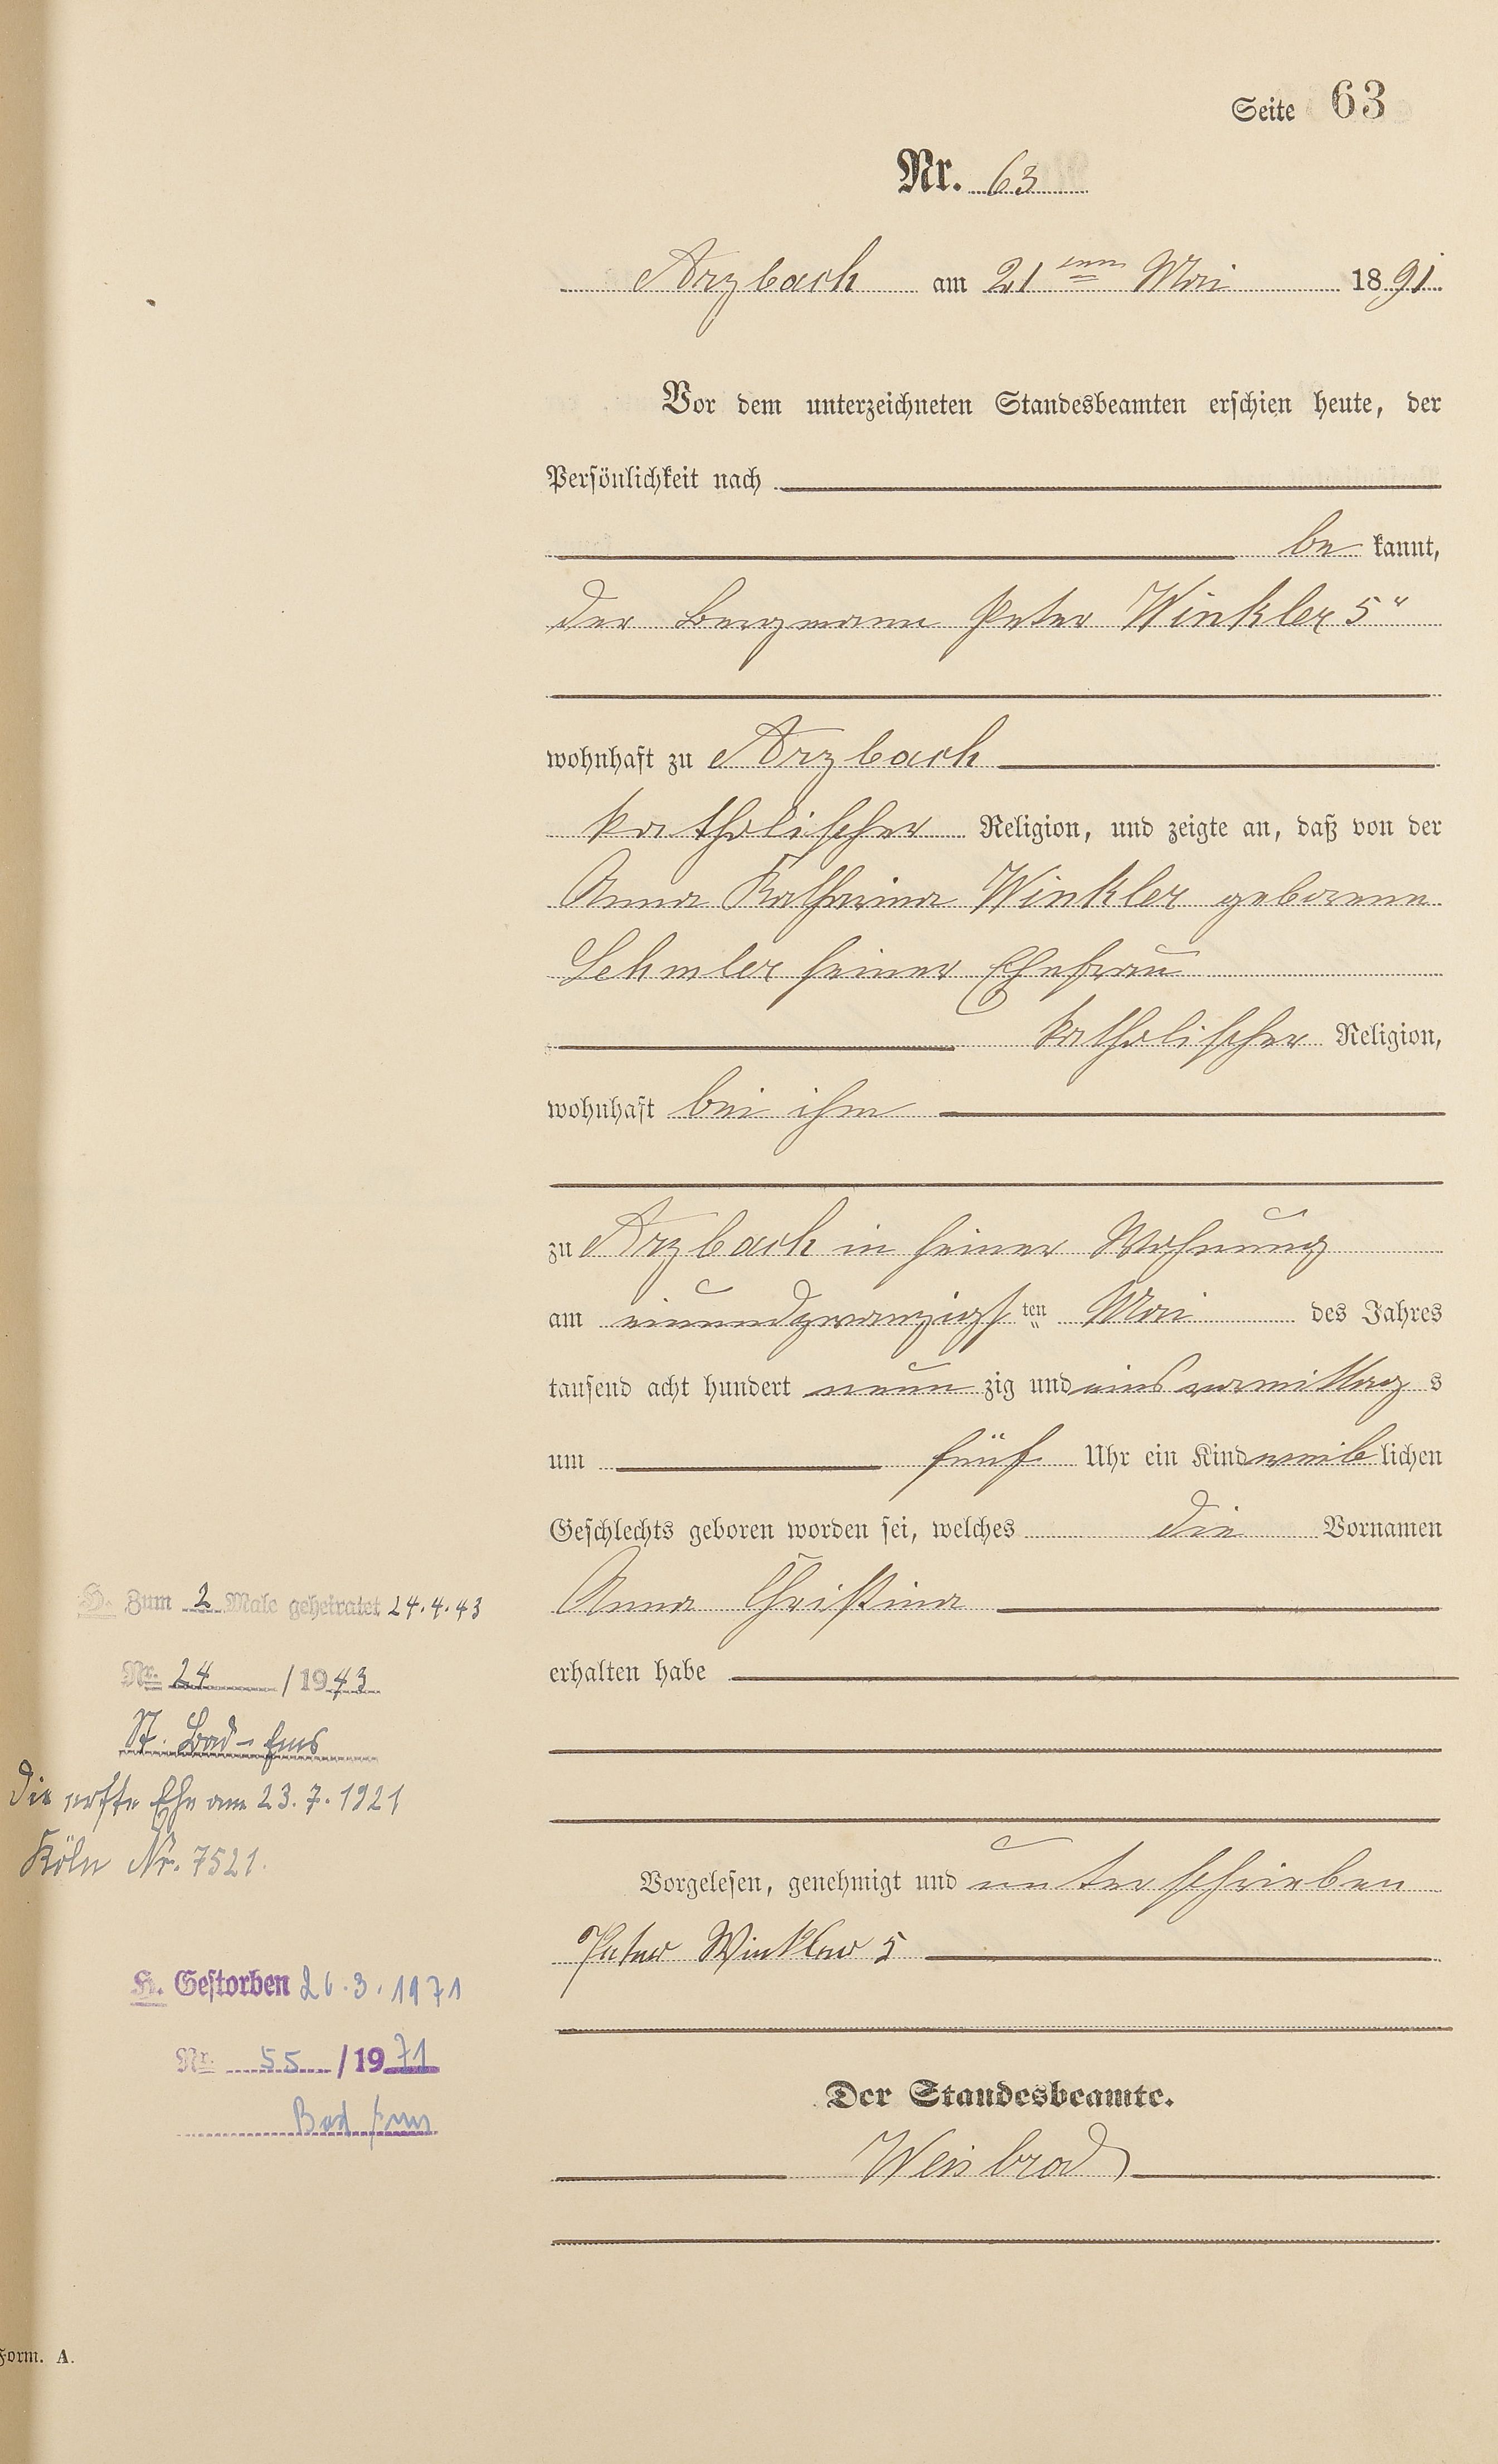 Seite 63
Nr. 63
Arzbach am 21ten Mai 1891.
Vor dem unterzeichneten Standesbeamten erschien heute, der
Persönlichkeit nach
be kannt,
der Bergmann Peter Winkler 5"
wohnhaft zu Arzbach
katholischer Religion, und zeigte an, daß von der
Anna Katharina Winkler geborene
Lehmler seiner Ehefrau
katholischer Religion,
wohnhaft bei ihm
zu Arzbach in seiner Wohnung
am einundzwanzigsten Mai des Jahres
tausend acht hundert neun zig und eins vormittag s
um fünf Uhr ein Kind weib lichen
Geschlechts geboren worden sei, welches die Vornamen
Anna Christina
erhalten habe
Vorgelesen, genehmigt und unterschrieben
Peter Winkler 5
Der Standesbeamte.
Weisbrod
H. Zum 2 Male geheiratet 24.4.43
Nr. 24 / 1943
St. Bad-Ems
Die erste Ehe am 23.7.1921
Köln Nr. 7521.
H. Gestorben 26.3.1971
Nr. 55 / 1971
Bad Ems
Form. A.